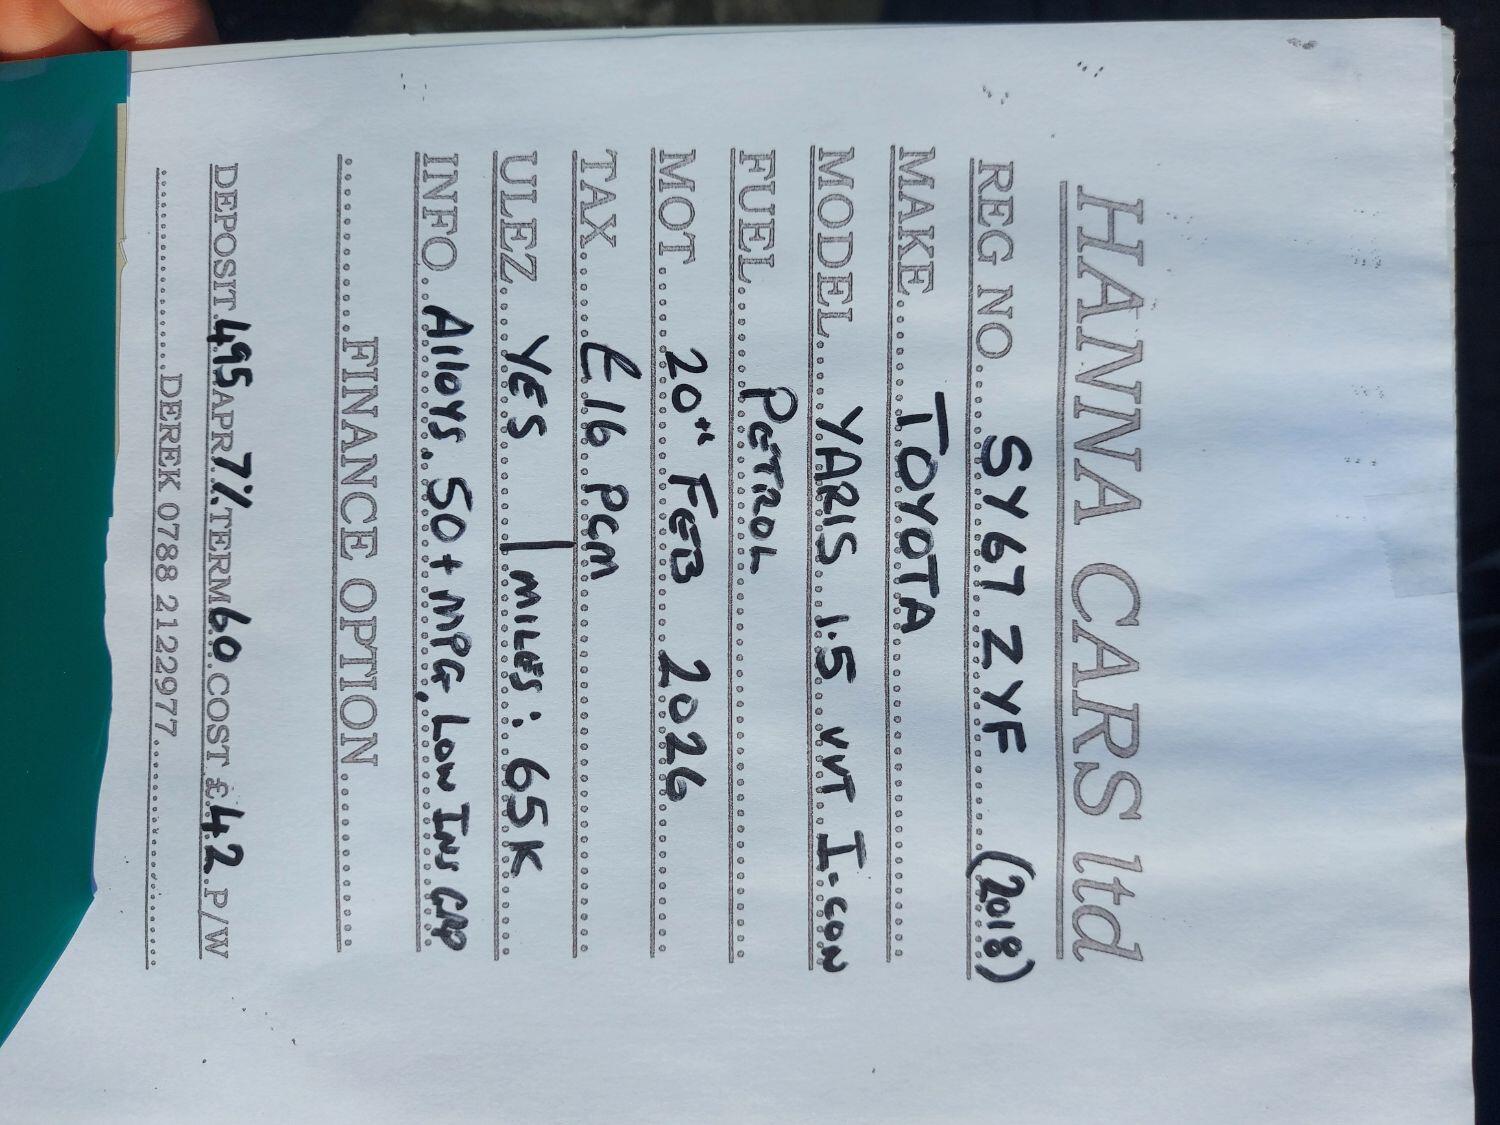 HANNA CARS ltd
REG NO.....SY67 ZYF (2018)
MAKE...TOYOTA
MODEL...YARIS 1.5 VVT I-CON
FUEL...PETROL
MOT....20TH FEB 2026
TAX....£16 PCM
ULEZ...YES | MILES: 65K
INFO..Alloys. 50+ MPG, LOW INS GRP
FINANCE OPTION
DEPOSIT.495 APR.7% TERM 60.COST £.42.P/W
DEREK 0788 2122977